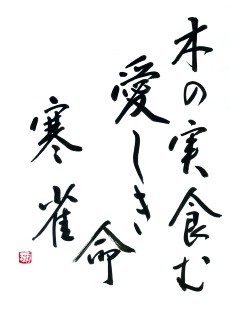 木の実食む
愛しき命
寒雀